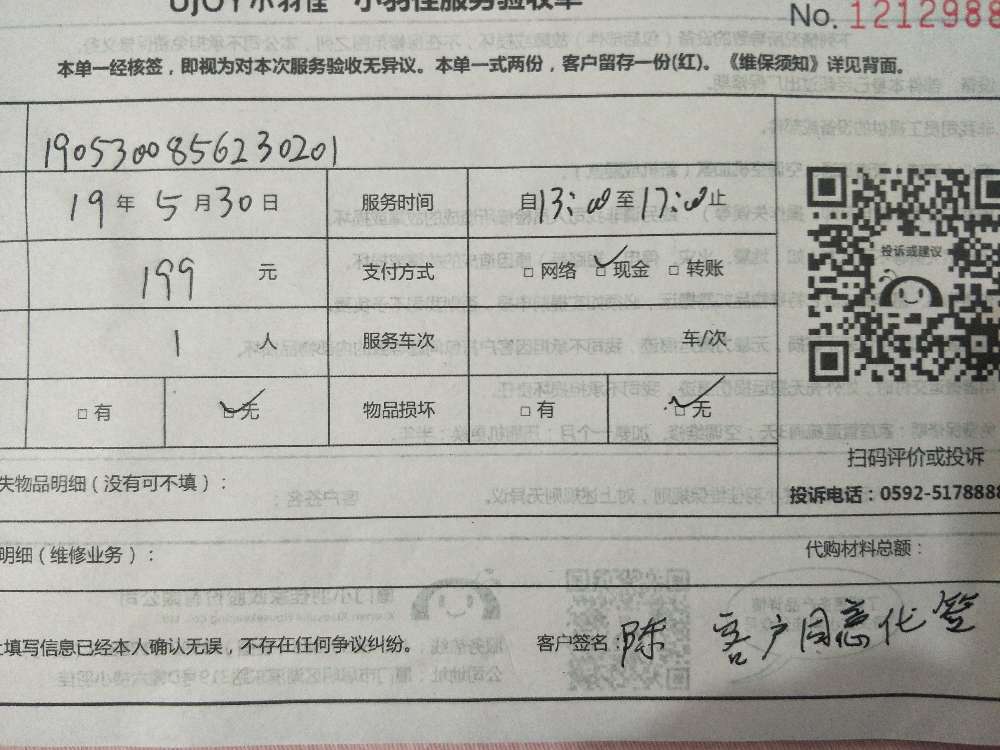 UJOY小羽佳 小羽佳服务验收单
No. 1212988
本单一经核签，即视为对本次服务验收无异议。本单一式两份，客户留存一份(红)。《维保须知》详见背面。
1905300856230201
19年5月30日 服务时间 自13:00至17:00止
投诉或建议
199 元 支付方式 □ 网络 ☑ 现金 □ 转账
1 人 服务车次 车/次
□ 有 ☑ 无 物品损坏 □ 有 ☑ 无
扫码评价或投诉
失物品明细（没有可不填）：
投诉电话：0592-5178888
明细（维修业务）： 代购材料总额：
填写信息已经本人确认无误，不存在任何争议纠纷。 客户签名：陈 客户同意代签